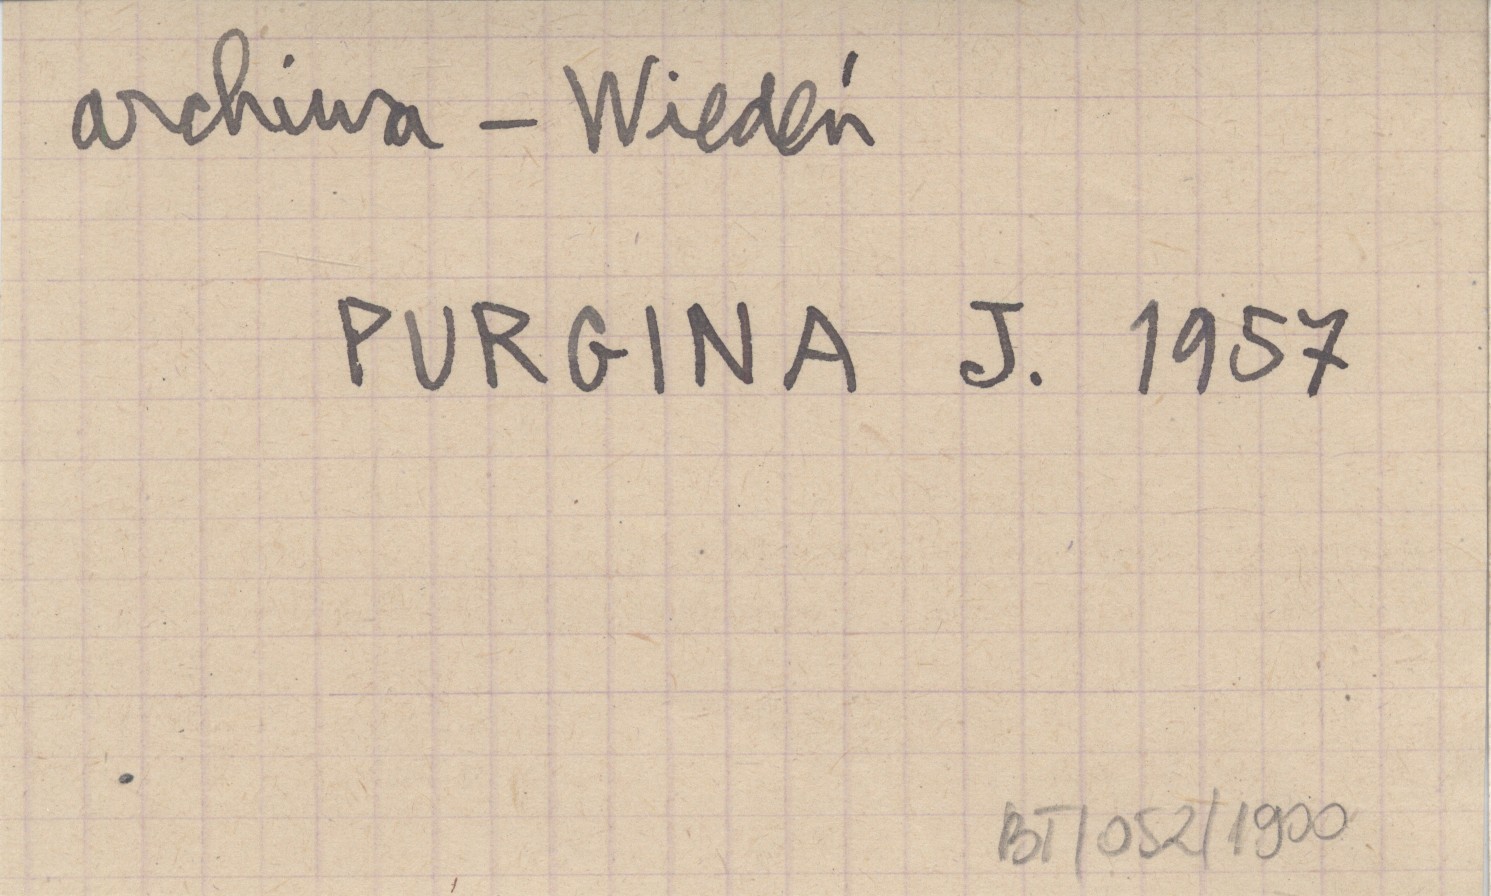 archiwa – Wiedeń
PURGINA J. 1957
BT/052/1900